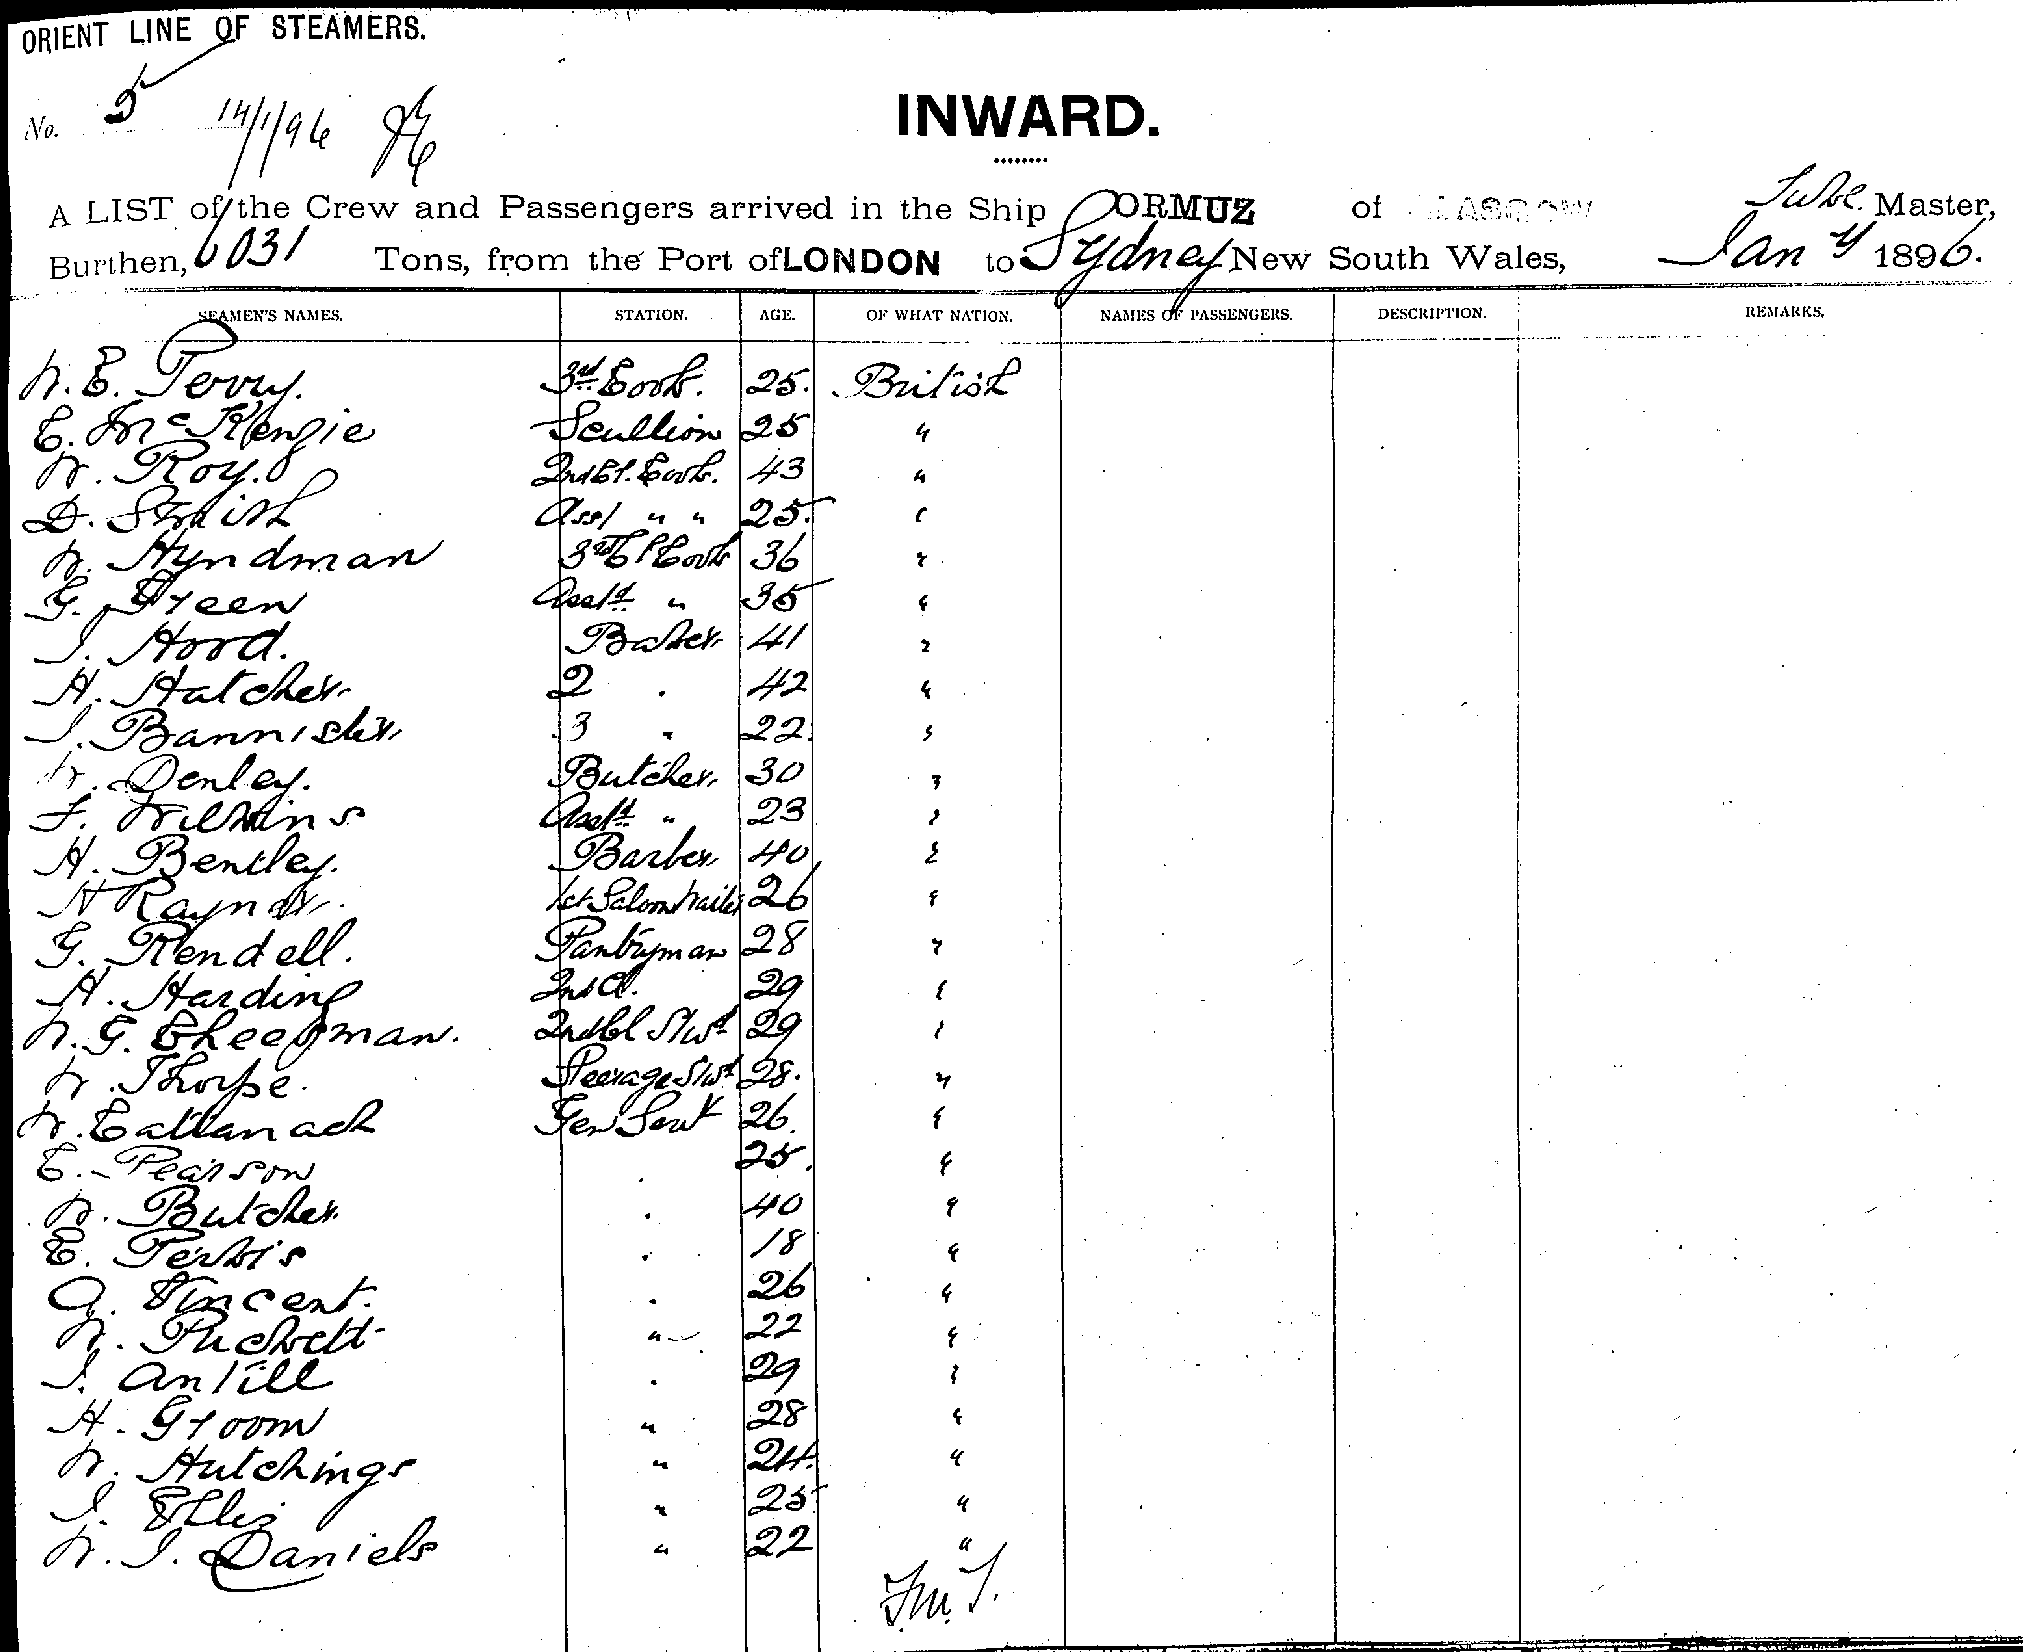 ORIENT LINE OF STEAMERS.
No. 5 14/1/96
INWARD.
A LIST of the Crew and Passengers arrived in the Ship ORMUZ of GLASGOW Master,
Burthen, 6031 Tons, from the Port of LONDON to Sydney New South Wales, Jany 1896.
SEAMEN'S NAMES. STATION. AGE. OF WHAT NATION. NAMES OF PASSENGERS. DESCRIPTION. REMARKS.
W. E. Perry. 3rd Cook. 25. British
E. McKenzie Scullion 25 "
W. Roy. 2nd Cl. Cook. 43 "
D. Smith Asst " " 25. "
W. Hyndman 3rd Cl Cook 36 "
G. Green Asst " 35 "
J. Hood. Baker 41 "
H. Hatcher 2 " 42 "
J. Bannister 3 " 22 "
W. Denley. Butcher 30 "
F. Wilkins Asst " 23 "
H. Bentley. Barber 40 "
H Raynor. 1st Saloon Waiter 26 "
G. Rendell. Pantryman 28 "
H. Harding 2nd Cl. 29 "
W. G. Cheesman. 2nd Cl Stwd 29 "
W. Thorpe. Steerage Stwd 28. "
W. Cattanach Gen Servt 26. "
C. Pearson " 25. "
W. Butcher " 40 "
C. " 18 "
A. Vincent. " 26 "
W. Puckett " 22 "
J. Antill " 29 "
H. Groom " 28 "
W. Hutchings " 24. "
J. Ellis " 25 "
W. J. Daniels " 22 "